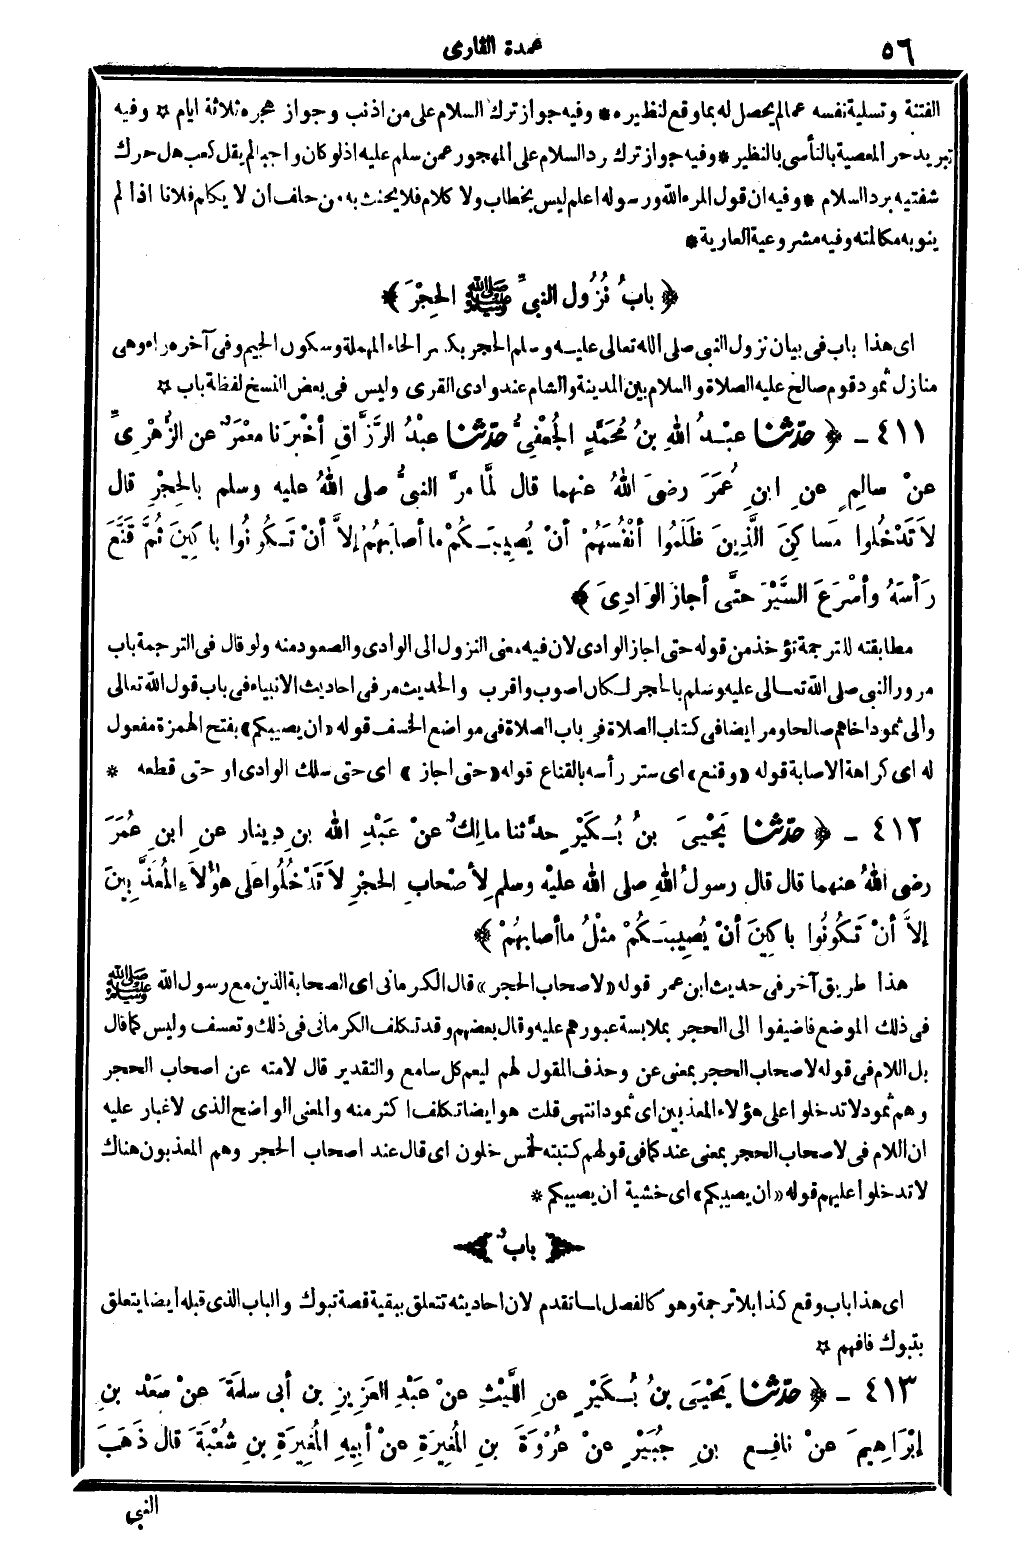 ٥٦
عمدة القارى
الفتنة وتسلية نفسه عمالم يحصل له بما وقع لنظيره * وفيه جواز ترك السلام على من اذنب وجواز هجره ثلاثة ايام * وفيه
تبريد حر المعصية بالتأسى بالنظير * وفيه جواز ترك رد السلام على المهجور عمن سلم عليه اذلو كان واجبا لم يقل كعب هل حرك
شفتيه برد السلام * وفيه ان قول المرء الله ورسوله اعلم ليس بخطاب ولا كلام فلا يحنث به من حلف ان لا يكلم فلانا اذا لم
ينو به مكالمته وفيه مشروعية العارية *
﴿ بابُ نُزُول النبىِّ ﷺ الحِجْرَ ﴾
اى هذا باب فى بيان نزول النبى صلى الله تعالى عليه وسلم الحجر بكسر الحاء المهملة وسكون الجيم وفى آخره راء وهى
منازل ثمود قوم صالح عليه الصلاة والسلام بين المدينة والشام عند وادى القرى وليس فى بعض النسخ لفظة باب *
٤١١ - ﴿ حدّثنا عبْدُ اللهِ بنُ مُحَمَّدٍ الجُعْفِيُّ حدّثنا عبْدُ الرَّزَّاقِ أخْبرَنا معْمَرٌ عن الزُّهْرِىِّ
عنْ سالِمٍ عنِ ابنِ عُمَرَ رضىَ اللهُ عنهما قال لمَّا مرَّ النبىُّ صلى اللهُ عليه وسلم بالحِجْرِ قال
لاَ تَدْخُلُوا مَساكِنَ الَّذِينَ ظَلَمُوا أنْفُسَهُمْ أنْ يُصِيبَكُمْ ما أصابَهُمْ إلاَّ أنْ تَكُونُوا باكِينَ ثُمَّ قَنَّعَ
رَأسَهُ وأسْرَعَ السَّيْرَ حتَّى أجازَ الوَادِىَ ﴾
مطابقته للترجمة تؤخذ من قوله حتى اجاز الوادى لان فيه معنى النزول الى الوادى والصعود منه ولو قال فى الترجمة باب
مرور النبى صلى الله تعالى عليه وسلم بالحجر لكان اصوب واقرب والحديث مر فى احاديث الانبياء فى باب قول الله تعالى
والى ثمود اخاهم صالحا ومر ايضا فى كتاب الصلاة فى باب الصلاة فى مواضع الخسف قوله «ان يصيبكم» بفتح الهمزة مفعول
له اى كراهة الاصابة قوله «وقنع» اى ستر رأسه بالقناع قوله «حتى اجاز» اى حتى سلك الوادى او حتى قطعه *
٤١٢ - ﴿ حدّثنا يَحْيىَ بنُ بُكَيْرٍ حدَّثنا مالِكٌ عنْ عَبْدِ اللهِ بنِ دِينار عنِ ابنِ عُمَرَ
رضى اللهُ عنهما قال قال رسولُ اللهِ صلى الله عليْه وسلم لِأصْحابِ الحجْرِ لاَ تَدْخُلُوا عَلى هؤُلاَءِ المُعَذَّبِينَ
إلاَّ أنْ تَكُونُوا باكِينَ أنْ يُصِيبَكُمْ مثْلُ ما أصابهُمْ ﴾
هذا طريق آخر فى حديث ابن عمر قوله «لاصحاب الحجر» قال الكرمانى اى الصحابة الذين مع رسول الله ﷺ
فى ذلك الموضع فاضيفوا الى الحجر بملابسة عبورهم عليه وقال بعضهم وقد تكلف الكرمانى فى ذلك وتعسف وليس كما قال
بل اللام فى قوله لاصحاب الحجر بمعنى عن وحذف المقول لهم ليعم كل سامع والتقدير قال لامته عن اصحاب الحجر
وهم ثمود لا تدخلوا على هؤلاء المعذبين اى ثمود انتهى قلت هو ايضا تكلف اكثر منه والمعنى الواضح الذى لا غبار عليه
ان اللام فى لاصحاب الحجر بمعنى عند كما فى قولهم كتبته لخمس خلون اى قال عند اصحاب الحجر وهم المعذبون هناك
لا تدخلوا عليهم قوله «ان يصيبكم» اى خشية ان يصيبكم *
﴿ بابٌ ﴾
اى هذا باب وقع كذا بلا ترجمة وهو كالفصل لما تقدم لان احاديثه تتعلق ببقية قصة تبوك والباب الذى قبله أيضا يتعلق
بتبوك فافهم *
٤١٣ - ﴿ حدّثنا يَحْيَى بنُ بُكَيْرٍ عنِ اللَّيْثِ عنْ عَبْدِ العَزِيزِ بنِ أبى سلَمَةَ عنْ سَعْدِ بنِ
إبْرَاهِيمَ عنْ نافِعِ بنِ جُبَيْرٍ عنْ عُرْوَةَ بنِ المُغِيرَةِ عنْ أبِيهِ المُغِيرَةِ بنِ شُعْبَةَ قال ذَهَبَ
النبى